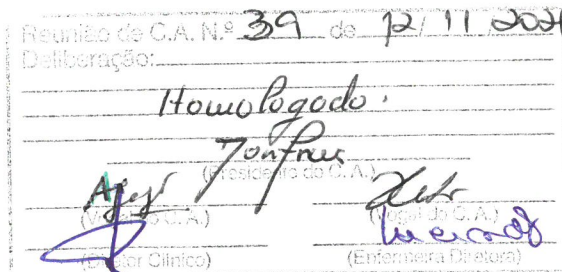 Reunião de C.A. N.º 39 de 12/11/2021
Deliberação:
Homologado.
(Presidente do C.A.)
(Vogal do C.A.) (Vogal do C.A.)
(Diretor Clínico) (Enfermeira Diretora)